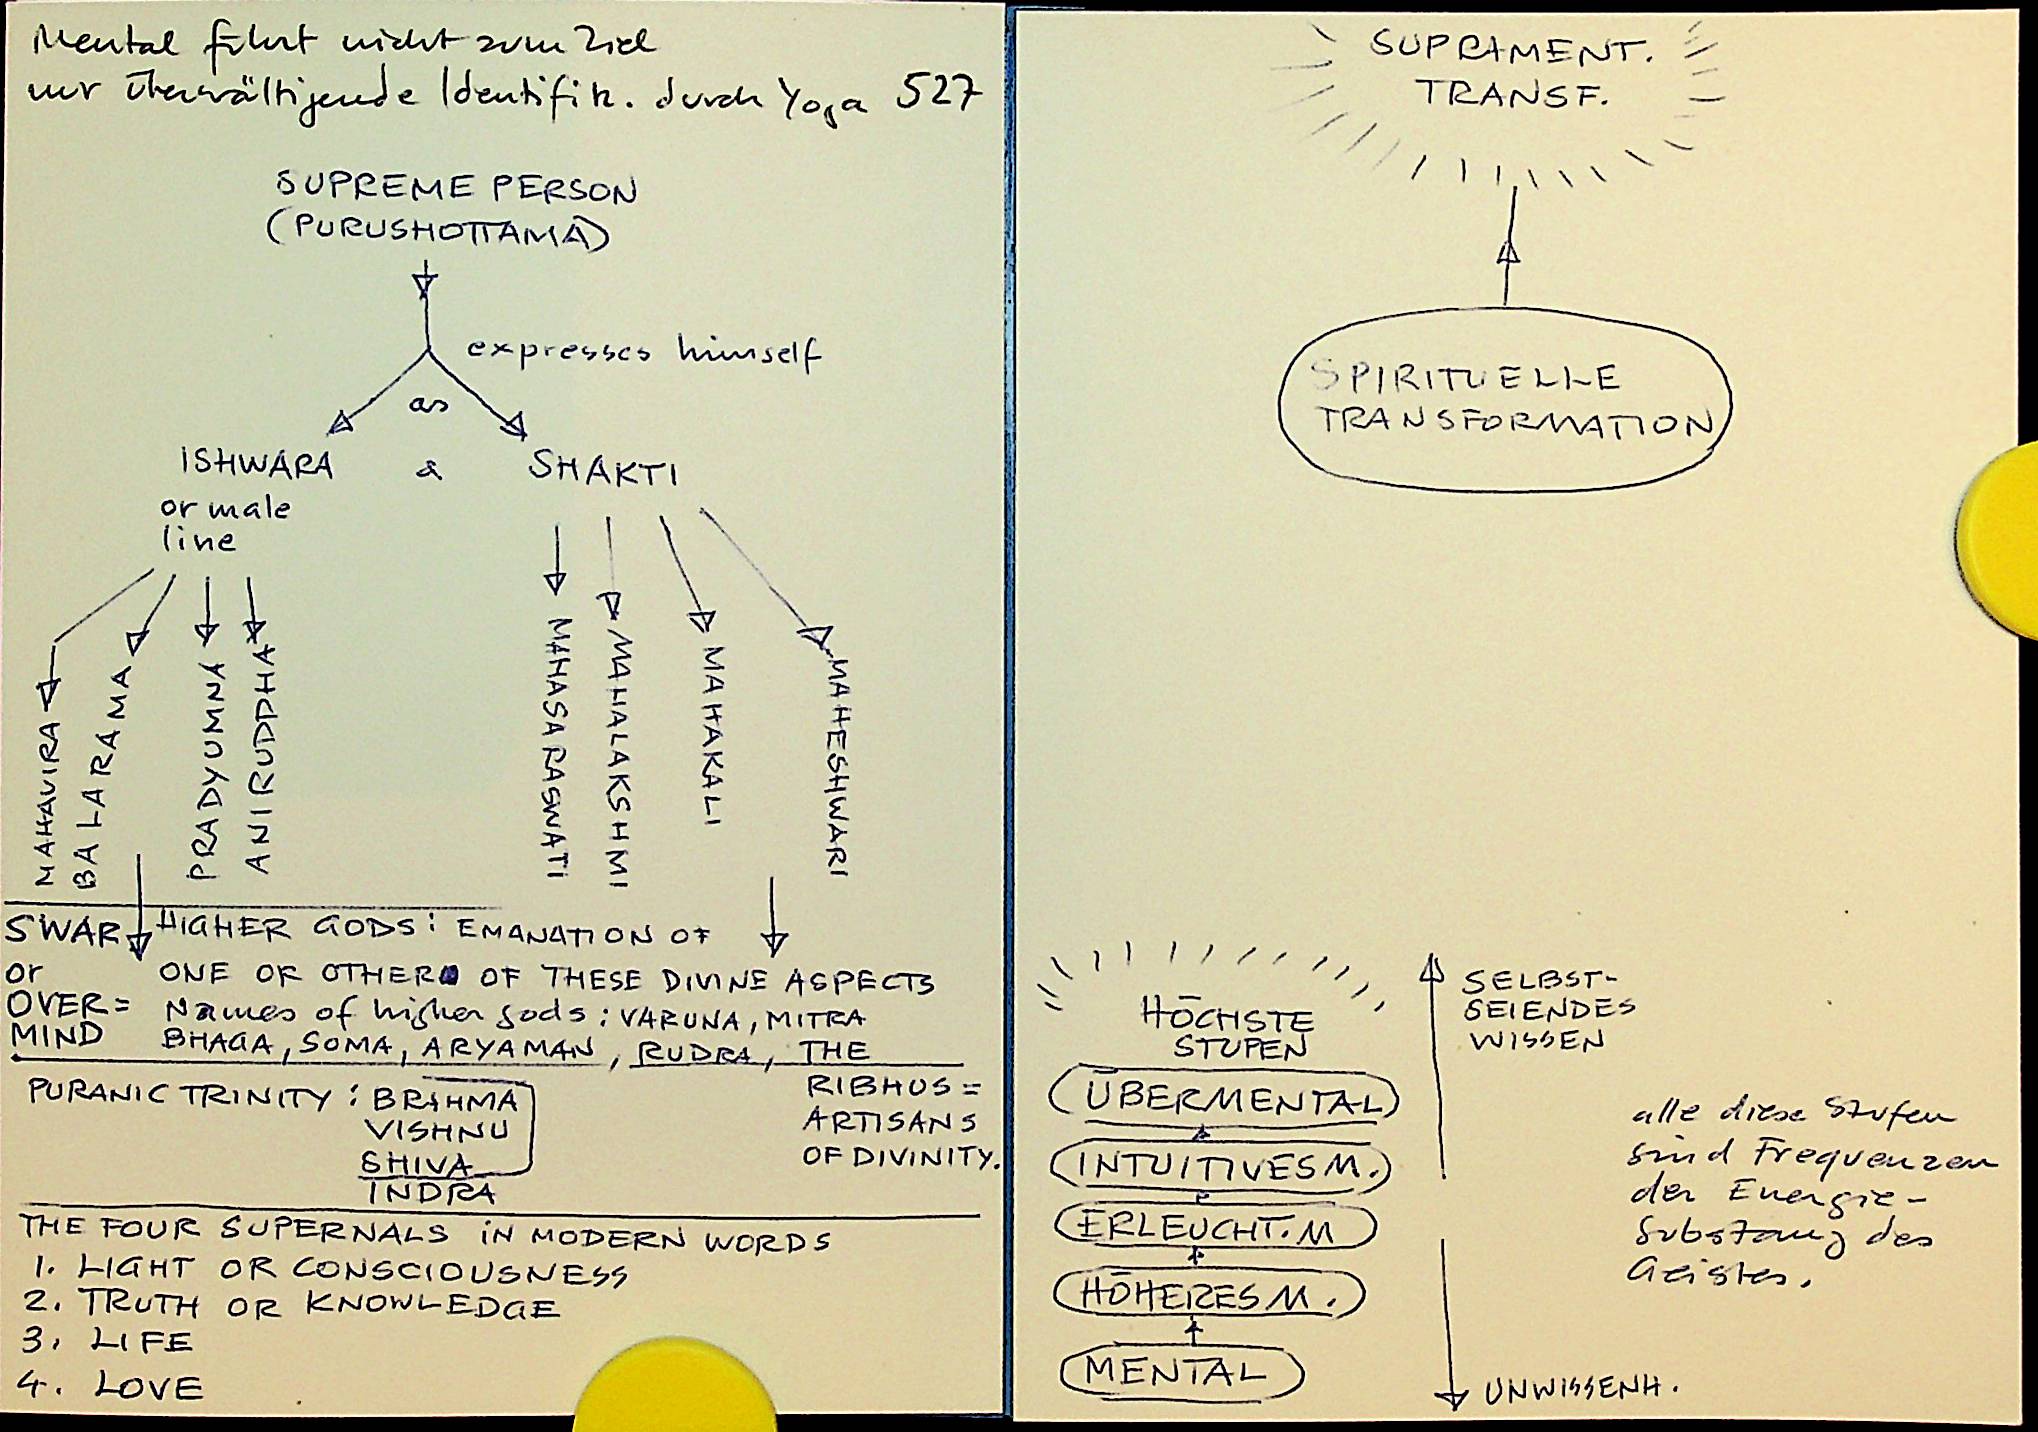 Mental führt nicht zum Ziel
nur überwältigende Identifik. durch Yoga 527
SUPREME PERSON
(PURUSHOTTAMA)
expresses himself
as
ISHWARA & SHAKTI
or male
line
MAHAVIRA
BALARAMA
PRADYUMNA
ANIRUDDHA
MAHASARASWATI
MAHALAKSHMI
MAHAKALI
MAHESHWARI
SWAR HIGHER GODS: EMANATION OF
or ONE OR OTHER OF THESE DIVINE ASPECTS
OVER= Names of higher gods: VARUNA, MITRA
MIND BHAGA, SOMA, ARYAMAN, RUDRA, THE
RIBHUS =
ARTISANS
OF DIVINITY.
PURANIC TRINITY: BRAHMA
VISHNU
SHIVA
INDRA
THE FOUR SUPERNALS IN MODERN WORDS
1. LIGHT OR CONSCIOUSNESS
2. TRUTH OR KNOWLEDGE
3. LIFE
4. LOVE
SUPRAMENT.
TRANSF.
SPIRITUELLE
TRANSFORMATION
HÖCHSTE
STUFEN
ÜBERMENTAL
INTUITIVES M.
ERLEUCHT. M
HÖHERES M.
MENTAL
SELBST-
SEIENDES
WISSEN
UNWISSENH.
alle diese Stufen
sind Frequenzen
der Energie-
Substanz des
Geistes.